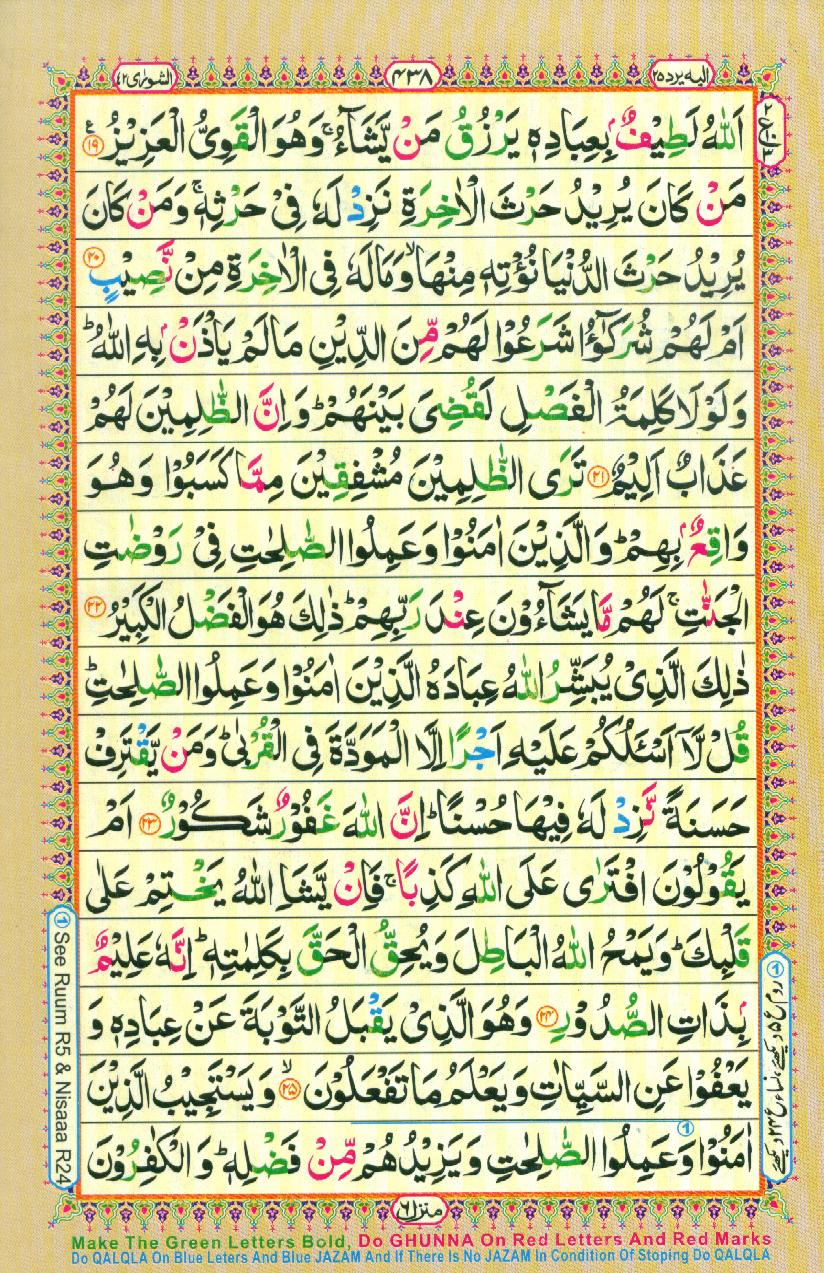 الیه یرد ۲۵
۴۳۸
الشورٰی ۴۲
اَللّٰهُ لَطِیْفٌۢ بِعِبَادِهٖ یَرْزُقُ مَنْ یَّشَآءُ ۚ وَهُوَ الْقَوِیُّ الْعَزِیْزُ ۱۹
مَنْ كَانَ یُرِیْدُ حَرْثَ الْاٰخِرَةِ نَزِدْ لَهٗ فِیْ حَرْثِهٖ ۚ وَمَنْ كَانَ
یُرِیْدُ حَرْثَ الدُّنْیَا نُؤْتِهٖ مِنْهَا ۙ وَمَالَهٗ فِی الْاٰخِرَةِ مِنْ نَّصِیْبٍ ۲۰
اَمْ لَهُمْ شُرَكٰٓؤُا شَرَعُوْا لَهُمْ مِّنَ الدِّیْنِ مَا لَمْ یَاْذَنْۢ بِهِ اللّٰهُ ؕ
وَلَوْلَا كَلِمَةُ الْفَصْلِ لَقُضِیَ بَیْنَهُمْ ؕ وَاِنَّ الظّٰلِمِیْنَ لَهُمْ
عَذَابٌ اَلِیْمٌ ۲۱ تَرَی الظّٰلِمِیْنَ مُشْفِقِیْنَ مِمَّا كَسَبُوْا وَهُوَ
وَاقِعٌۢ بِهِمْ ؕ وَالَّذِیْنَ اٰمَنُوْا وَعَمِلُوا الصّٰلِحٰتِ فِیْ رَوْضٰتِ
الْجَنّٰتِ ۚ لَهُمْ مَّا یَشَآءُوْنَ عِنْدَ رَبِّهِمْ ؕ ذٰلِكَ هُوَ الْفَضْلُ الْكَبِیْرُ ۲۲
ذٰلِكَ الَّذِیْ یُبَشِّرُ اللّٰهُ عِبَادَهُ الَّذِیْنَ اٰمَنُوْا وَعَمِلُوا الصّٰلِحٰتِ ؕ
قُلْ لَّآ اَسْـَٔلُكُمْ عَلَیْهِ اَجْرًا اِلَّا الْمَوَدَّةَ فِی الْقُرْبٰی ؕ وَمَنْ یَّقْتَرِفْ
حَسَنَةً نَّزِدْ لَهٗ فِیْهَا حُسْنًا ؕ اِنَّ اللّٰهَ غَفُوْرٌ شَكُوْرٌ ۲۳ اَمْ
یَقُوْلُوْنَ افْتَرٰی عَلَی اللّٰهِ كَذِبًا ۚ فَاِنْ یَّشَاِ اللّٰهُ یَخْتِمْ عَلٰی
قَلْبِكَ ؕ وَیَمْحُ اللّٰهُ الْبَاطِلَ وَیُحِقُّ الْحَقَّ بِكَلِمٰتِهٖ ؕ اِنَّهٗ عَلِیْمٌۢ
بِذَاتِ الصُّدُوْرِ ۲۴ وَهُوَ الَّذِیْ یَقْبَلُ التَّوْبَةَ عَنْ عِبَادِهٖ وَ
یَعْفُوْا عَنِ السَّیِّاٰتِ وَیَعْلَمُ مَا تَفْعَلُوْنَ ۙ ۲۵ وَیَسْتَجِیْبُ الَّذِیْنَ
اٰمَنُوْا وَعَمِلُوا الصّٰلِحٰتِ وَیَزِیْدُهُمْ مِّنْ فَضْلِهٖ ؕ وَالْكٰفِرُوْنَ
① See Ruum R5 & Nisaaa R24
منزل ۶
Make The Green Letters Bold, Do GHUNNA On Red Letters And Red Marks
Do QALQLA On Blue Leters And Blue JAZAM And If There Is No JAZAM In Condition Of Stoping Do QALQLA